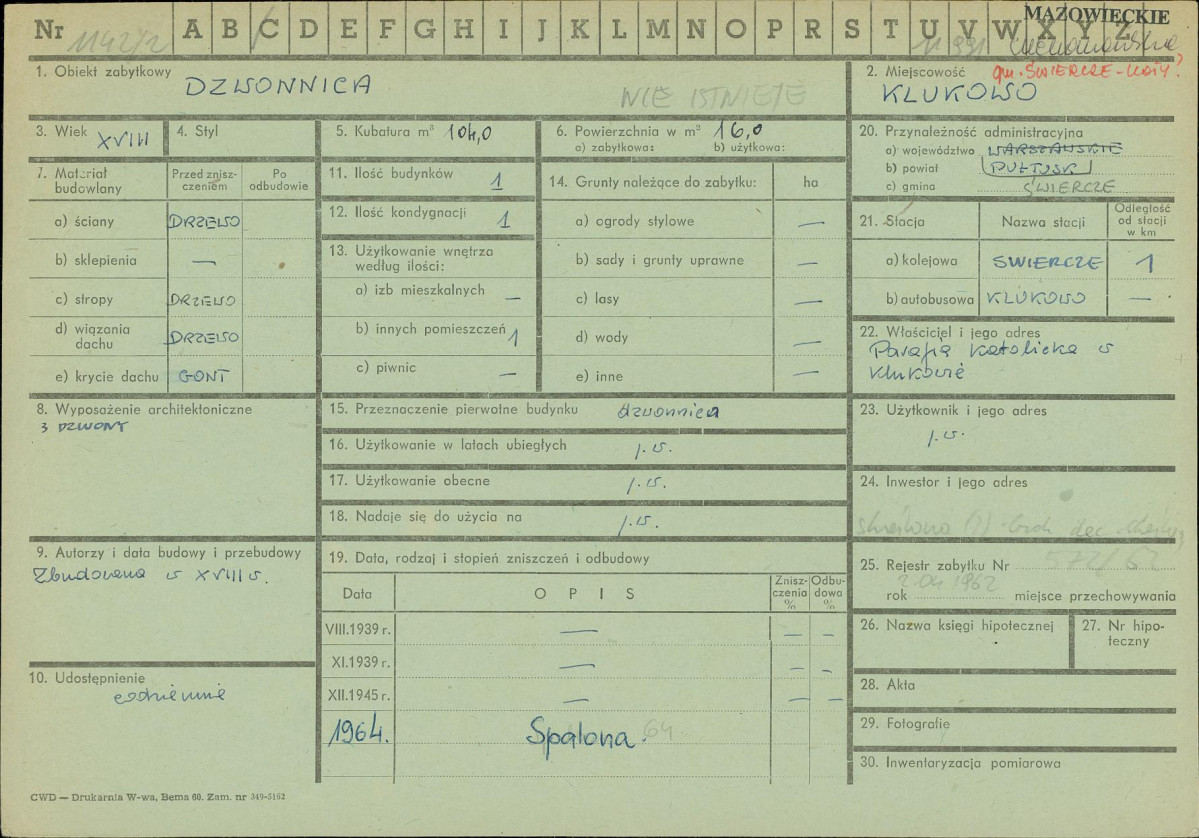 MAZOWIECKIE
Nr 1142/2 A B C D E F G H I J K L M N O P R S T U V W X Y Z
1. Obiekt zabytkowy
DZWONNICA
NIE ISTNIEJE
2. Miejscowość gm. ŚWIERCZE-KOTY?
KLUKOWO
3. Wiek XVIII
4. Styl
5. Kubatura m³ 104,0
6. Powierzchnia w m² 16,0
a) zabytkowa: b) użytkowa:
20. Przynależność administracyjna
a) województwo WARSZAWSKIE
b) powiat PUŁTUSK
c) gmina ŚWIERCZE
7. Materiał budowlany
Przed zniszczeniem
Po odbudowie
a) ściany DRZEWO
b) sklepienia —
c) stropy DRZEWO
d) wiązania dachu DRZEWO
e) krycie dachu GONT
11. Ilość budynków 1
12. Ilość kondygnacji 1
13. Użytkowanie wnętrza
według ilości:
a) izb mieszkalnych —
b) innych pomieszczeń 1
c) piwnic —
14. Grunty należące do zabytku: ha
a) ogrody stylowe —
b) sady i grunty uprawne —
c) lasy —
d) wody —
e) inne —
21. Stacja Nazwa stacji Odległość od stacji w km
a) kolejowa ŚWIERCZE 1
b) autobusowa KLUKOWO —
22. Właściciel i jego adres
Parafia Katolicka w
Klukowie
8. Wyposażenie architektoniczne
3 DZWONY
15. Przeznaczenie pierwotne budynku dzwonnica
16. Użytkowanie w latach ubiegłych j.w.
17. Użytkowanie obecne j.w.
18. Nadaje się do użycia na j.w.
23. Użytkownik i jego adres
j.w.
24. Inwestor i jego adres
skreślono (?) brak dec.
9. Autorzy i data budowy i przebudowy
Zbudowana w XVIII w.
19. Data, rodzaj i stopień zniszczeń i odbudowy
Data OPIS Zniszczenia % Odbudowa %
VIII.1939 r. — — —
XI.1939 r. — — —
XII.1945 r. — — —
1964. Spalona. 64
25. Rejestr zabytku Nr 572/62
2.04 1962
rok miejsce przechowywania
26. Nazwa księgi hipotecznej
27. Nr hipoteczny
28. Akta
29. Fotografie
30. Inwentaryzacja pomiarowa
10. Udostępnienie
codziennie
CWD — Drukarnia W-wa, Bema 60. Zam. nr 349-5162